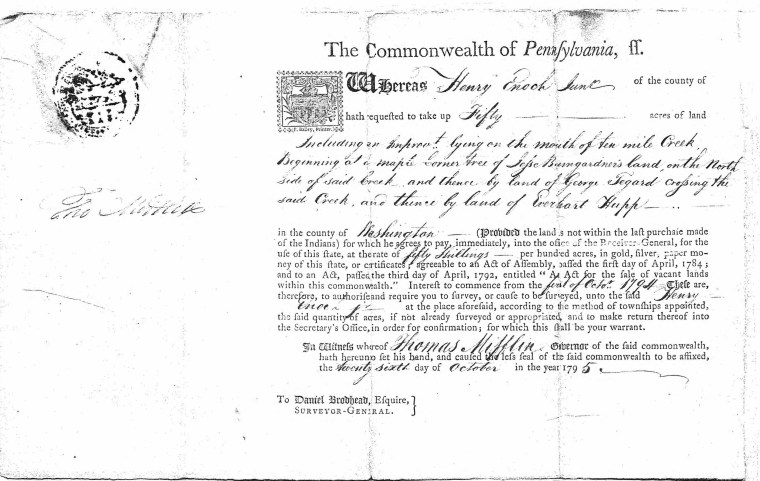 The Commonwealth of Pennſylvania, ſſ.
WHereas Henry Enoch Junr of the county of
hath requeſted to take up Fifty acres of land
F. Bailey, Printer.
Including an Improvt. lying on the mouth of ten mile Creek
Beginning at a maple corner tree of Baumgardner's land, on the North
side of said Creek and thence by land of George Tegard crossing the
said Creek, and thence by land of Everhart Hupp
Tho Mifflin
in the county of Washington (Provided the land is not within the laſt purchaſe made
of the Indians) for which he agrees to pay, immediately, into the office of the Receiver-General, for the
uſe of this ſtate, at the rate of fifty Shillings per hundred acres, in gold, ſilver, paper mo-
ney of this ſtate, or certificates, agreeable to an Act of Aſſembly, paſſed the firſt day of April, 1784;
and to an Act, paſſed the third day of April, 1792, entitled "An Act for the ſale of vacant lands
within this commonwealth." Intereſt to commence from the first of Octor. 1794 Theſe are,
therefore, to authoriſe and require you to ſurvey, or cauſe to be ſurveyed, unto the ſaid Henry
Enoch Jr at the place aforeſaid, according to the method of townſhips appointed,
the ſaid quantity of acres, if not already ſurveyed or appropriated, and to make return thereof into
the Secretary's Office, in order for confirmation; for which this ſhall be your warrant.
In Witneſs whereof Thomas Mifflin Governor of the ſaid commonwealth,
hath hereunto ſet his hand, and cauſed the leſs ſeal of the ſaid commonwealth to be affixed,
the twenty sixth day of October in the year 1795.
To Daniel Brodhead, Eſquire,
SURVEYOR-GENERAL.